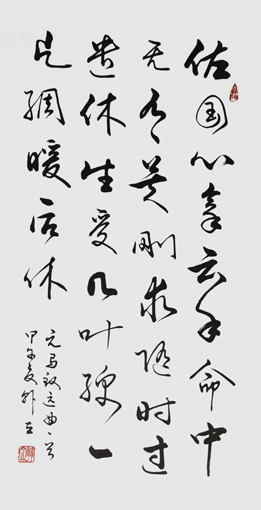 佐国心拿云手命中
无莫刚求随时过
遣休生受几叶绵一
片绸暖后休
元马致远曲一首
甲午夏